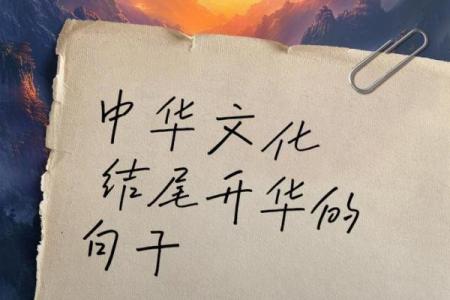 中华文化
结尾开华的
句子